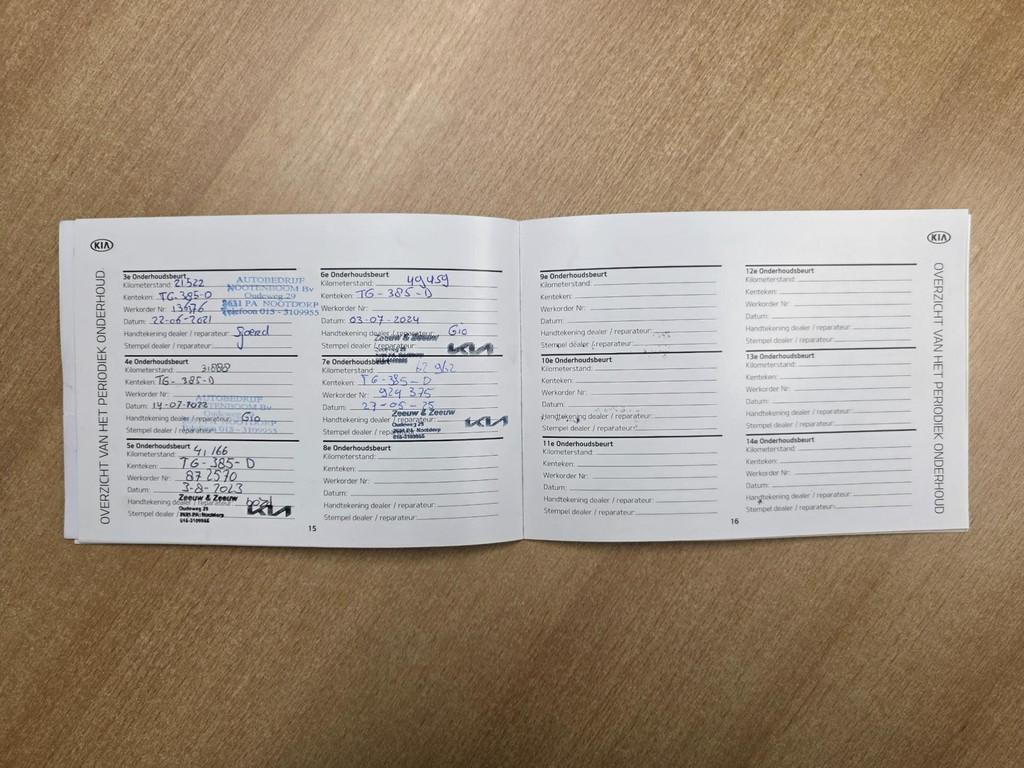 KIA
OVERZICHT VAN HET PERIODIEK ONDERHOUD
3e Onderhoudsbeurt
Kilometerstand: 21522
Kenteken: TG-385-D
Werkorder Nr:
Datum: 22-06-2021
Handtekening dealer / reparateur:
Stempel dealer / reparateur:
AUTOBEDRIJF
NOOTENBOOM BV
Oudeweg 29
2631 PA NOOTDORP
Telefoon 015 - 3109955
4e Onderhoudsbeurt
Kilometerstand: 31888
Kenteken: TG-385-D
Werkorder Nr:
Datum: 14-07-2022
Handtekening dealer / reparateur: Gio
Stempel dealer / reparateur:
AUTOBEDRIJF
NOOTENBOOM BV
5e Onderhoudsbeurt
Kilometerstand: 41166
Kenteken: TG-385-D
Werkorder Nr: 872570
Datum: 3-8-2023
Handtekening dealer / reparateur:
Stempel dealer /
Zeeuw & Zeeuw
Oudeweg 29
2631 PA Nootdorp
015-3109955
KIA
6e Onderhoudsbeurt
Kilometerstand: 49459
Kenteken: TG-385-D
Werkorder Nr:
Datum: 03-07-2024
Handtekening dealer / reparateur: Gio
Stempel dealer / reparateur:
Zeeuw & Zeeuw
KIA
7e Onderhoudsbeurt
Kilometerstand: 62962
Kenteken: TG-385-D
Werkorder Nr: 924375
Datum: 27-05-25
Handtekening dealer / reparateur:
Stempel dealer / reparateur:
Zeeuw & Zeeuw
Oudeweg 29
2631 PA Nootdorp
015-3109955
KIA
8e Onderhoudsbeurt
Kilometerstand:
Kenteken:
Werkorder Nr:
Datum:
Handtekening dealer / reparateur:
Stempel dealer / reparateur:
15
9e Onderhoudsbeurt
Kilometerstand:
Kenteken:
Werkorder Nr:
Datum:
Handtekening dealer / reparateur:
Stempel dealer / reparateur:
10e Onderhoudsbeurt
Kilometerstand:
Kenteken:
Werkorder Nr:
Datum:
Handtekening dealer / reparateur:
Stempel dealer / reparateur:
11e Onderhoudsbeurt
Kilometerstand:
Kenteken:
Werkorder Nr:
Datum:
Handtekening dealer / reparateur:
Stempel dealer / reparateur:
12e Onderhoudsbeurt
Kilometerstand:
Kenteken:
Werkorder Nr:
Datum:
Handtekening dealer / reparateur:
Stempel dealer / reparateur:
13e Onderhoudsbeurt
Kilometerstand:
Kenteken:
Werkorder Nr:
Datum:
Handtekening dealer / reparateur:
Stempel dealer / reparateur:
14e Onderhoudsbeurt
Kilometerstand:
Kenteken:
Werkorder Nr:
Datum:
Handtekening dealer / reparateur:
Stempel dealer / reparateur:
16
KIA
OVERZICHT VAN HET PERIODIEK ONDERHOUD